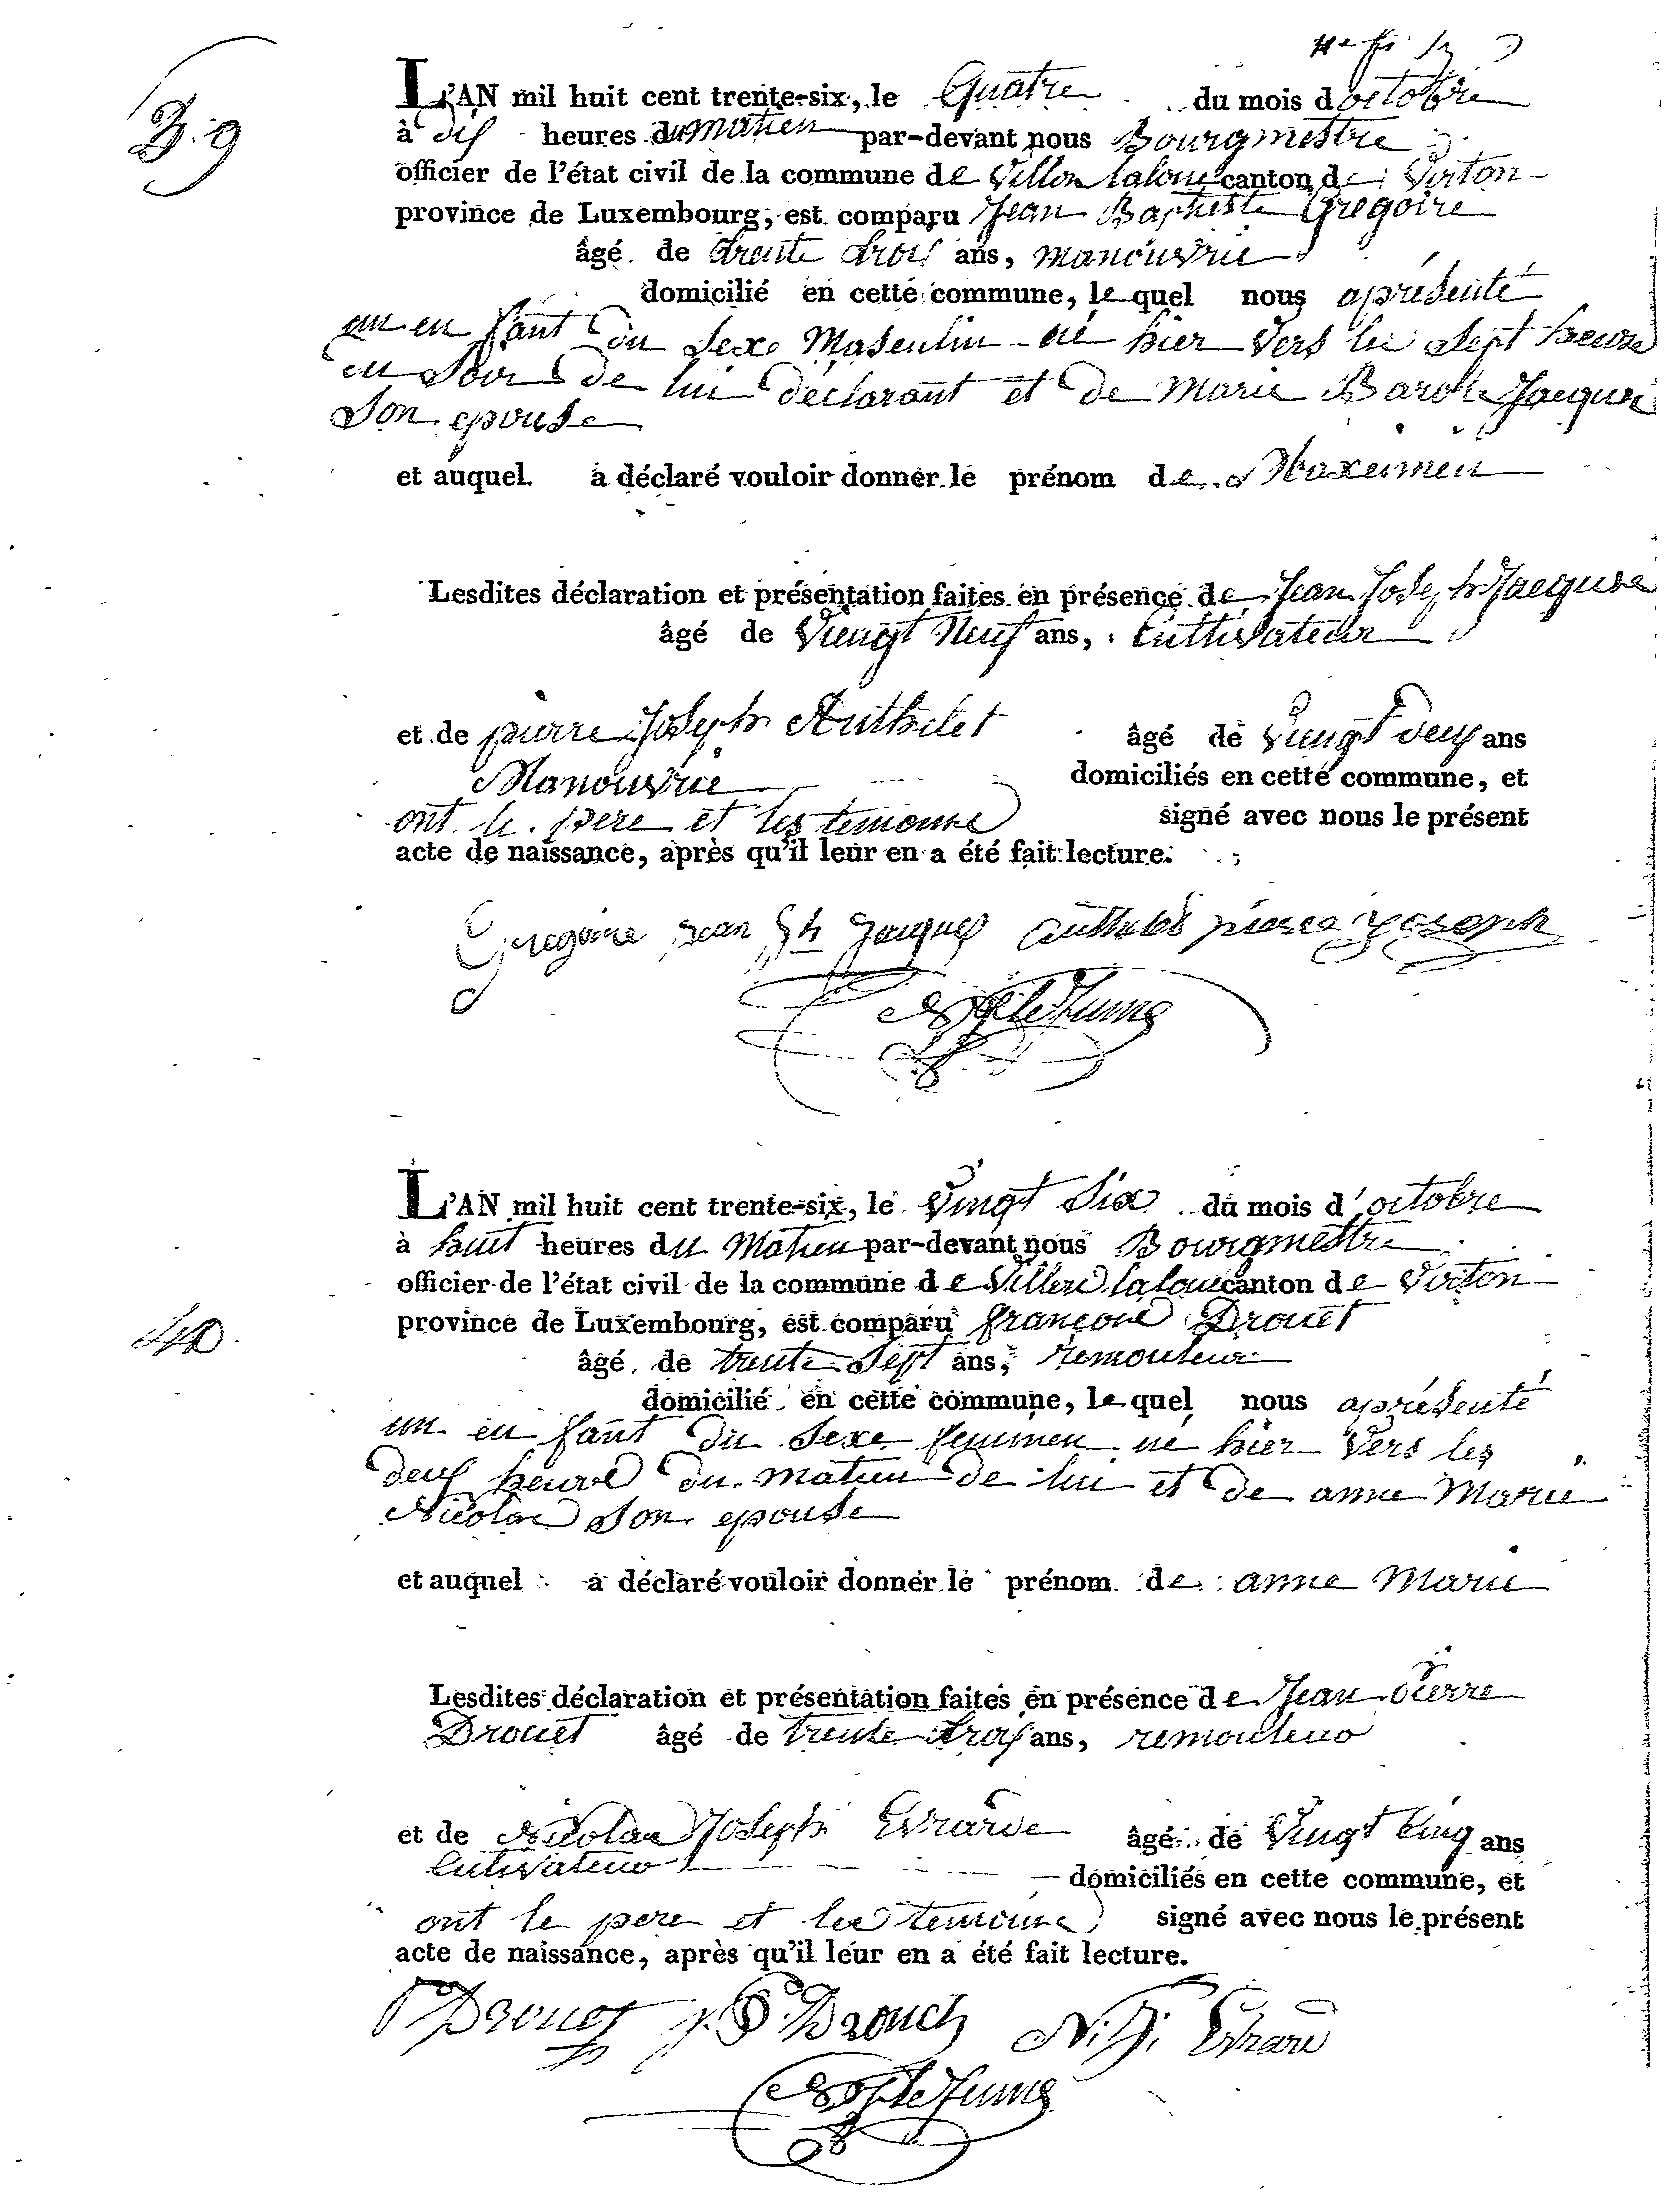 39
L'AN mil huit cent trente-six, le Quatre du mois d octobre
à dis heures du matien par-devant nous Bourgmestre
officier de l'état civil de la commune de Viller laloue canton de Virton
province de Luxembourg, est comparu Jean Baptiste Gregoire
âgé de trente trois ans, manouvrie
domicilié en cette commune, le quel nous a présenté
un en fant du Sexe Masculin né hier vers les Sept heure
du Soir de lui déclarant et de marie Barbe Jacques
Son epouse
et auquel a déclaré vouloir donner le prénom de Maxeimien
Lesdites déclaration et présentation faites en présence de Jean Joseph Jacques
âgé de Viengt Neuf ans, Cultivateur
et de pierre Joseph Authelet âgé de Viengt deux ans
Manouvrie domiciliés en cette commune, et
ont le pere et les temoins signé avec nous le présent
acte de naissance, après qu'il leur en a été fait lecture.
Gregoire Jean Jh Jacques authelet pierre joseph
L'AN mil huit cent trente-six, le Vingt Six du mois d'octobre
à huit heures du Matien par-devant nous Bourgmestre
officier de l'état civil de la commune de Viller laloue canton de Virton
40
province de Luxembourg, est comparu françois Drouet
âgé de trente Sept ans, remouleur
domicilié en cette commune, le quel nous a présenté
un en fant du Sexe femmen né hier vers les
deux heure du matien de lui et de anne Marie
Nicolas Son epouse
et auquel a déclaré vouloir donner le prénom de anne Marie
Lesdites déclaration et présentation faites en présence de Jean Pierre
Drouet âgé de trente trois ans, remouleur
et de Nicolas Joseph Evrard âgé de Vingt Cinq ans
Cultivateur domiciliés en cette commune, et
ont le pere et les temoins signé avec nous le présent
acte de naissance, après qu'il leur en a été fait lecture.
Drouet J. P. Drouet N. J. Evrard